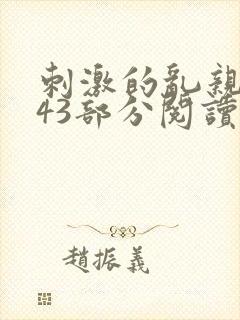 刺激的亂親
43部分閱讀
趙振義